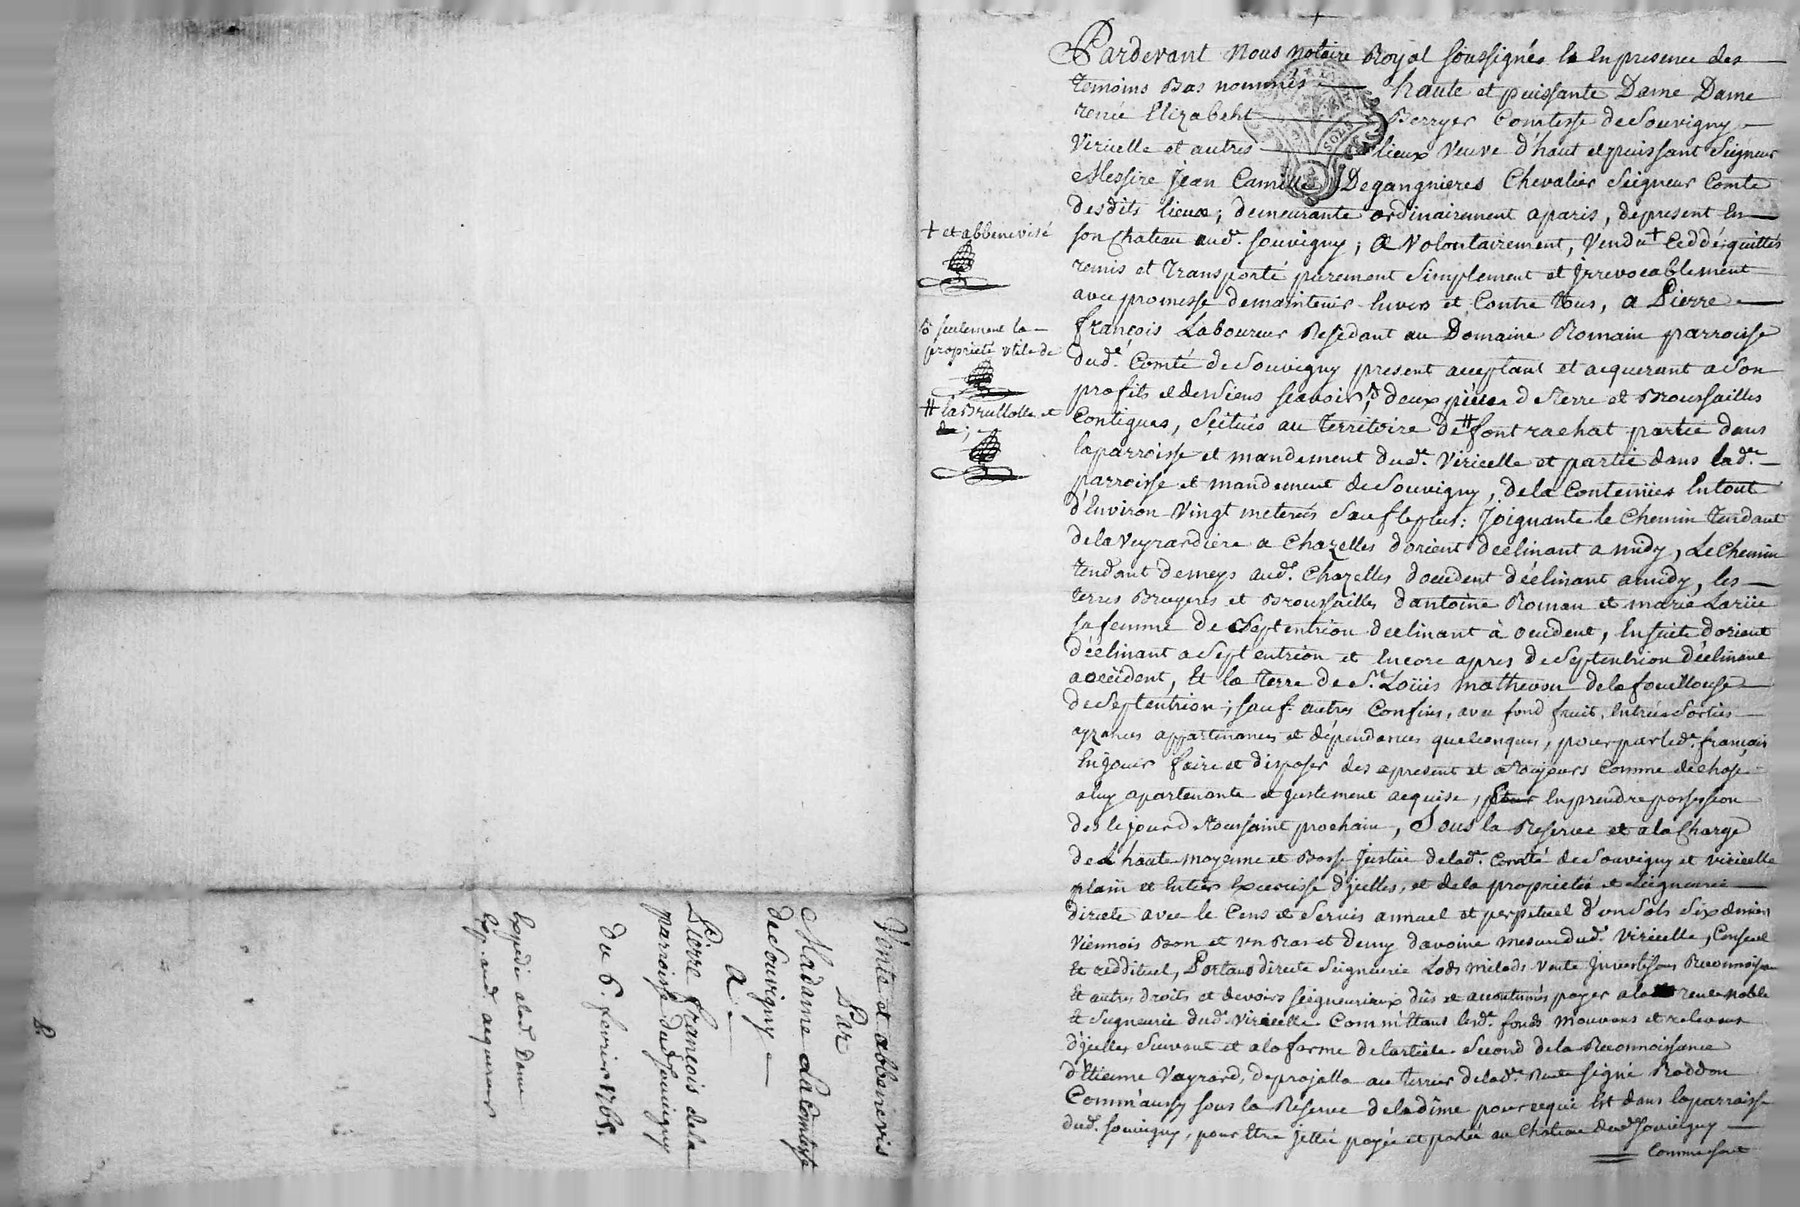 Pardevant Nous notaire Royal soussigné & En presence des
temoins Bas nommés haute et puissante Dame Dame
renée Elizabeht Berryer Comtesse de Souvigny
Viricelle et autres lieux Veuve d'haut et puissant Seigneur
Messire Jean Camille Degangnieres Chevalier Seigneur Comte
desdits lieux, demeurante ordinairement a paris, depresent En
son Chateau aud. Souvigny; a Volontairement, Vendu + Ceddé, quittés
remis et Transporté purement Simplement et Jrrevocablement
avec promesse demaintenir Envers et Contre tous, a Pierre
françois Laboureur Residant au Domaine Romain parroisse
dud. Comté de Souvigny present acceptant et acquerant a Son
profits et de siens scavoir, deux pièces de Terre et Broussailles
Contigues, Scitués au territoire de # font rachat partie dans
la parroisse et mandement dud. Viricelle et partie dans lad.
parroisse et mandement de Souvigny, de la Contenües En tout
d'Environ Vingt meterés Sauf le plus: Joignante le Chemin Tendant
de la Veyrardiere a Chazelles d'orient declinant a midy, Le Chemin
tendant de meys aud. Chazelles d'occident déclinant a midy, les
terres Brugeres et Broussailles d'antoine Roman et marie Lariie
sa femme de Septentrion declinant à occident, En suite d'orient
déclinant a Septentrion et Encore apres de Septentrion déclinant
a occident, Et la terre de Sr. Loüis mathevon de la fouillouse
de Septentrion; sauf autres Confins, avec fond fruit, Entrées Sorties
ayzances appartenances et dépendances quelconques, pour par led. françois
En jouir faire et disposer des apresent et a Toujours Comme de chose
a luy apartenante et justement acquise, En prendre possession
des le jour de Toussaint prochain, Sous la Reserve et a la Charge
de L haute moyenne et Basse Justice delad. Comté de Souvigny et viricelle
plain et Entier Exercisse d'jcelles, et de la proprieté et Seigneurie
directe avec le Cens et Servis annuel et perpetuel d'un Sols Six deniers
Viennois Bon et un Ras et demy d'avoine mesure dud. Viricelle, Censuel
Et reddituel, Portant directe Seigneurie Lods milods vente Jnvestison Reconnoissance
Et autres droits et devoirs seigneuriaux dûs et accoutumés payer a la rente noble
Et Seigneurie dud. Viricelle Comm'Etans lesd. fonds mouvans et relevans
d'jcelles Suivant et a la forme de l'article Second de la Reconnoissance
d'Etienne Vayrard, de projalla au terrier delad. Rente signé Roddon
Comm'aussy sous la Reserve de la dîme pour cequi Est dans la parroisse
dud. Souvigny, pour Etre jcelle payée et portée au Chateau dud. Souvigny
Comme sont
+ et abbenevisé
seulement la
propriete utile de
# la Brullolle et
Vente et abbenevis
Par
Madame La Comtesse
de Souvigny
A
Pierre françois de la
parroisse dud. Souvigny
du 6. fevrier 1765.
Expedié alad. Dame
Exp. aud. acquereur